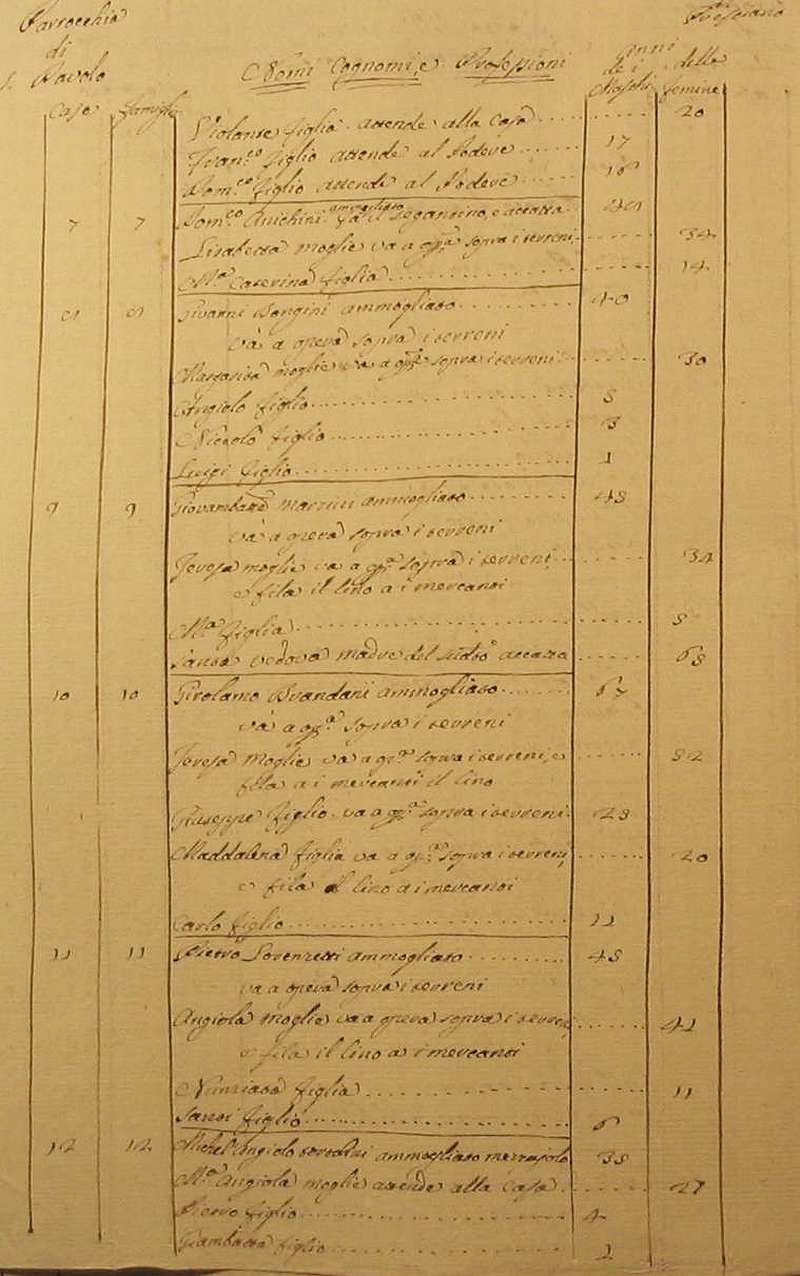 Parrocchia
di
S. Pavolo
Nomi Cognomi, e Professioni
Anni
de i Maschi
delle femine
Case
famigle
Violante figlia attende alla Casa 20
Fran.co figlio attende al Podere 17
Dom.co figlio attende al Podere 16
7 7 Dom.co Anichini ammogliato fà il segantino, e accatta
Lisabetta moglie va a op.a sopra i terreni 34
M.a Caterina figlia 14
8 8 Giovanni Bongini ammogliato 40
và a opera sopra i terreni
Margarita moglie va a op.a sopra i terreni 30
Angiolo figlio 5
Niccolò figlio 3
Luigi figlio 1
9 9 Giovambatta Marzini ammogliato 48
và a opera sopra i terreni
Teresa moglie va a op.a sopra i terreni, 34
e fila il lino a i mercanti
M.a figlia 8
Santa vedova madre del sudto accatta 68
10 10 Girolamo Brandani ammogliato 67
và a op.a sopra i terreni
Teresa Moglie và a op.a sopra i terreni, e 52
fila a i mercanti il lino
Giuseppe figlio va a op.a sopra i terreni 28
Maddalena figlia va a op.a sopra i terreni, 20
e fila il lino a i mercanti
Carlo figlio 11
11 11 Pietro Lorenzetti ammogliato 48
va a opera sopra i terreni
Angiola moglie va a opera sopra i terreni 41
e fila il lino a i mercanti
Nunziata figlia 11
Santi figlio 6
12 12 Michel'Angiolo ammogliato mezzajolo 38
M.a Angiola moglie attende alla Casa 27
Pietro figlio 4
Giambatta figlio 1